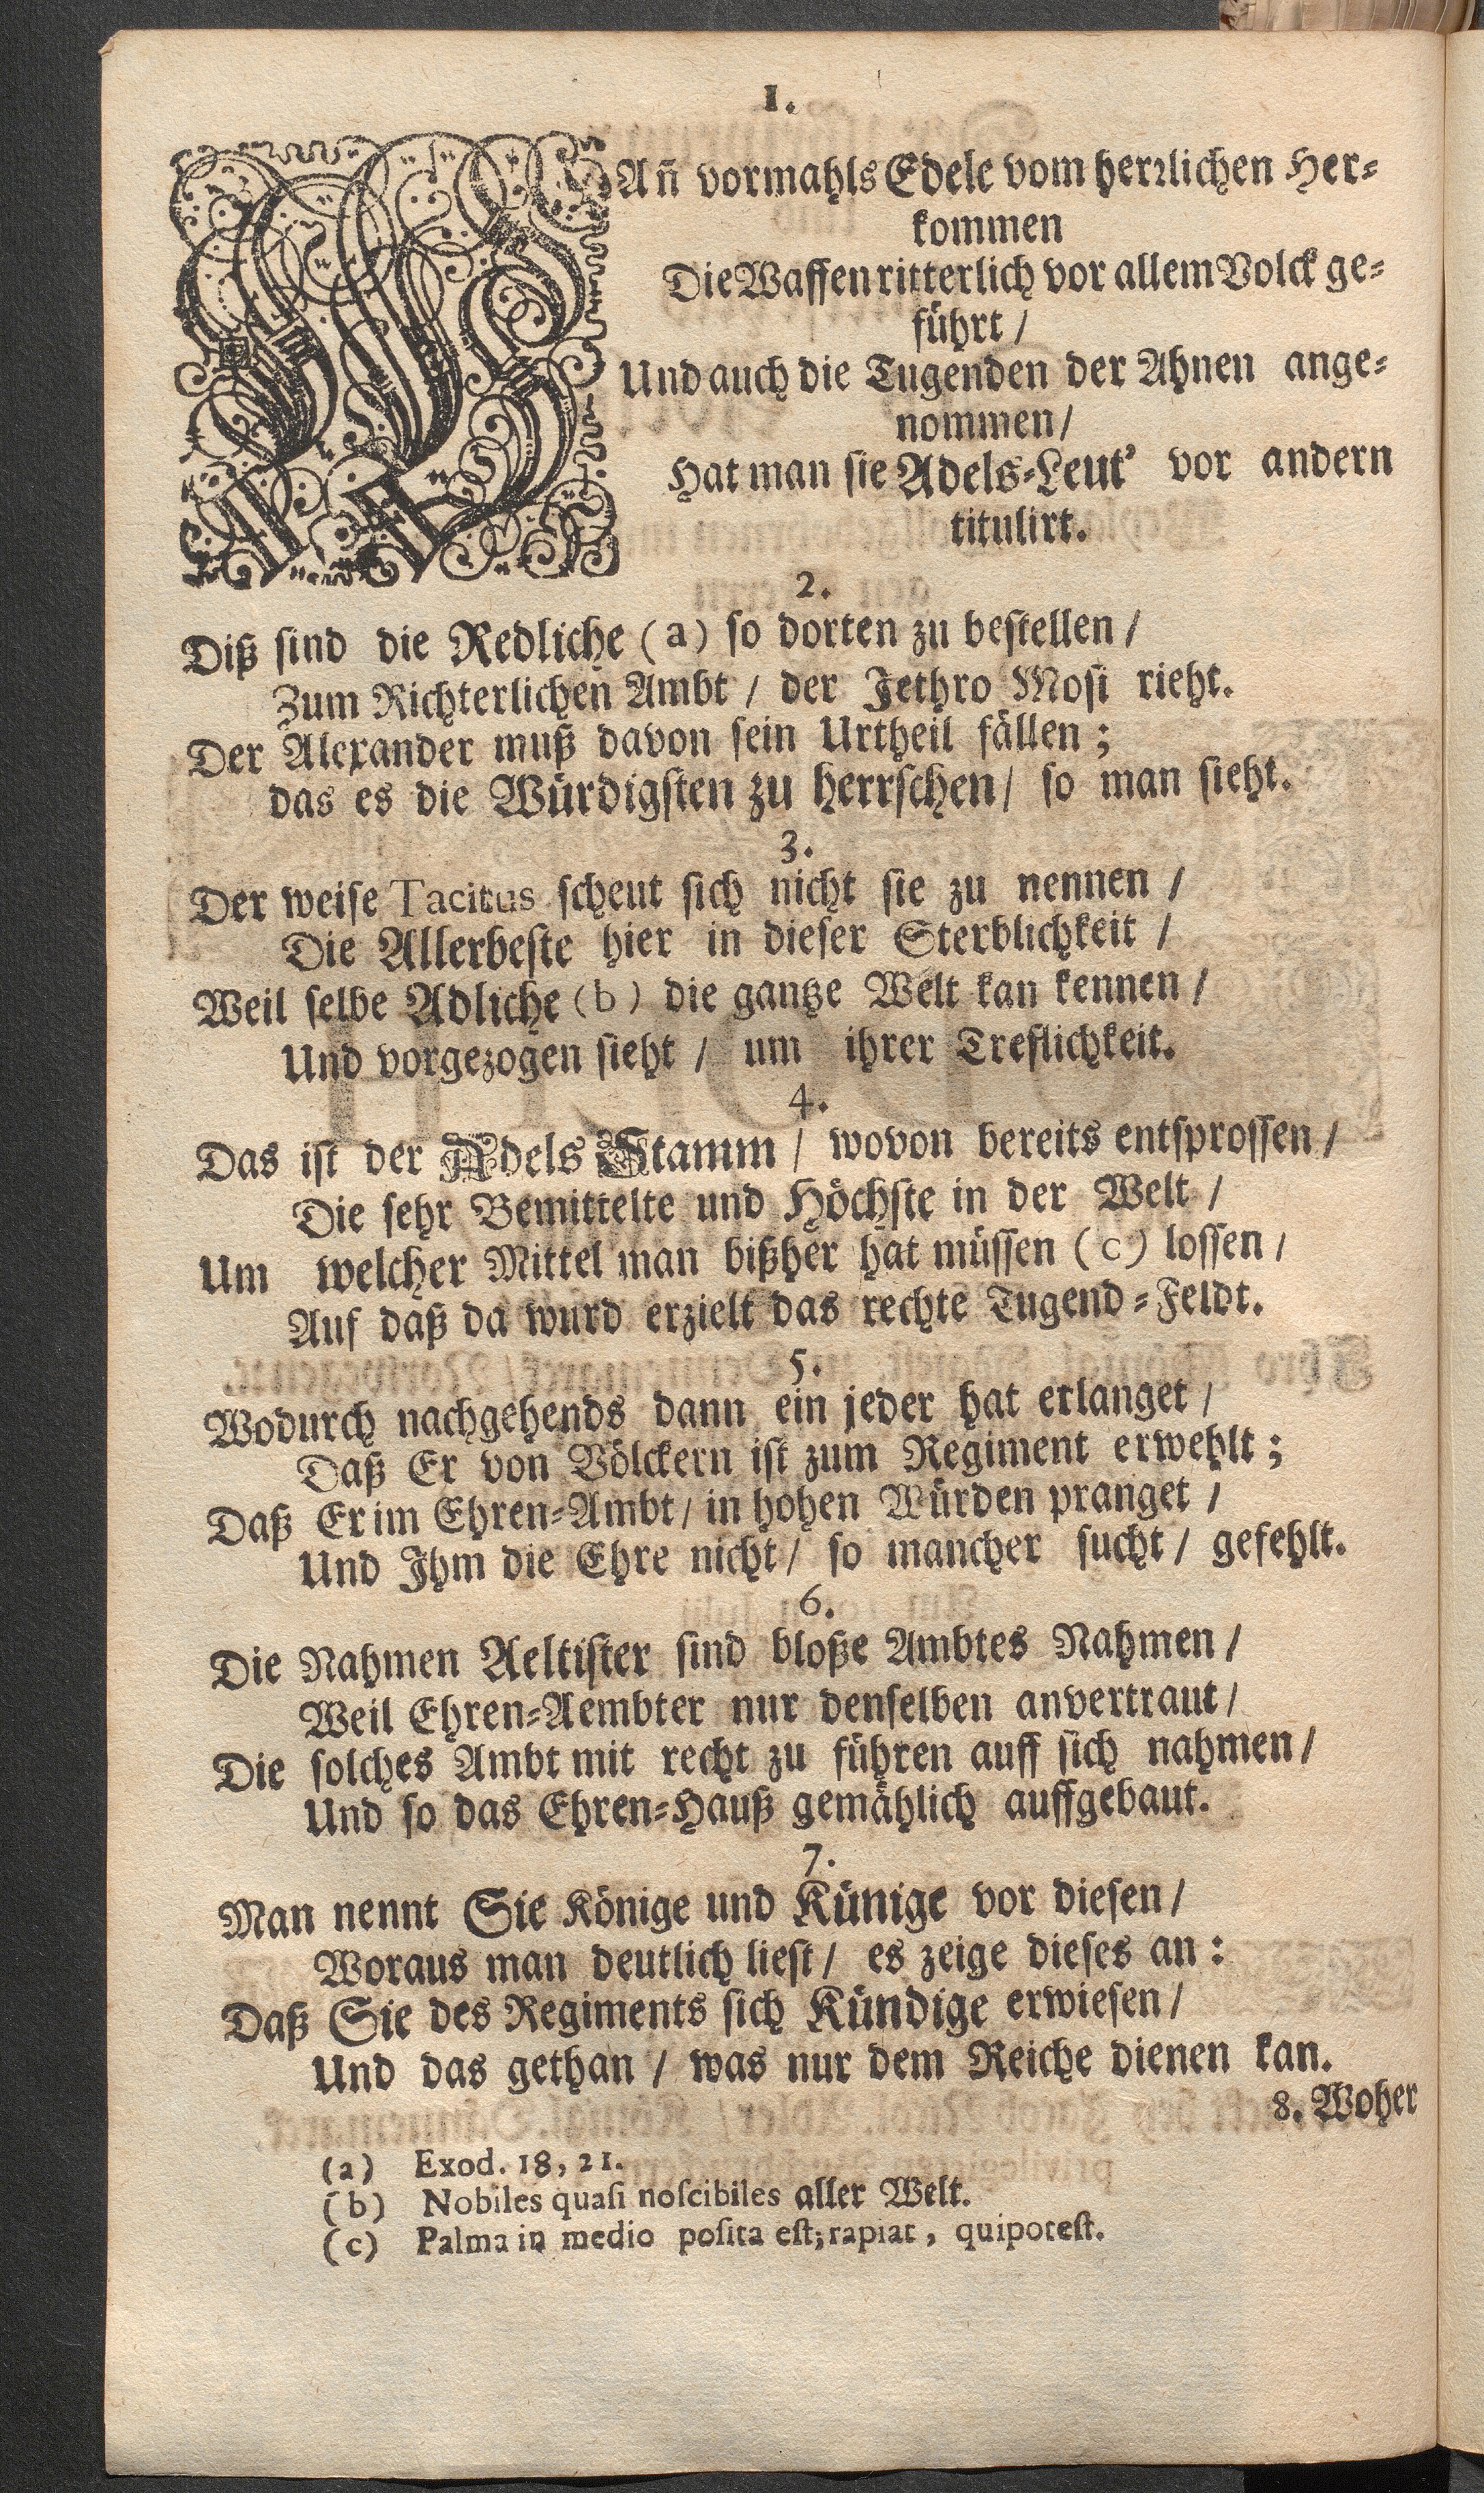 1.
WAn̄ vormahls Edele vom herrlichen Her-
kommen
Die Waffen ritterlich vor allem Volck ge-
führt /
Und auch die Tugenden der Ahnen ange-
nommen /
Hat man sie Adels-Leut' vor andern
titulirt.
2.
Diß sind die Redliche (a) so dorten zu bestellen /
Zum Richterlichen Ambt / der Jethro Mosi rieht.
Der Alexander muß davon sein Urtheil fällen;
das es die Würdigsten zu herrschen / so man sieht.
3.
Der weise Tacitus scheut sich nicht sie zu nennen /
Die Allerbeste hier in dieser Sterblichkeit /
Weil selbe Adliche (b) die gantze Welt kan kennen /
Und vorgezogen sieht / um ihrer Treflichkeit.
4.
Das ist der Adels Stamm / wovon bereits entsprossen /
Die sehr Bemittelte und Höchste in der Welt /
Um welcher Mittel man bißher hat müssen (c) lossen /
Auf daß da wurd erzielt das rechte Tugend-Feldt.
5.
Wodurch nachgehends dann ein jeder hat erlanget /
Daß Er von Völckern ist zum Regiment erwehlt;
Daß Er im Ehren-Ambt / in hohen Würden pranget /
Und Ihm die Ehre nicht / so mancher sucht / gefehlt.
6.
Die Nahmen Aeltister sind bloße Ambtes Nahmen /
Weil Ehren-Aembter nur denselben anvertraut /
Die solches Ambt mit recht zu führen auff sich nahmen /
Und so das Ehren-Hauß gemählich auffgebaut.
7.
Man nennt Sie Könige und Künige vor diesen /
Woraus man deutlich liest / es zeige dieses an:
Daß Sie des Regiments sich Kündige erwiesen /
Und das gethan / was nur dem Reiche dienen kan.
8. Woher
(a) Exod. 18, 21.
(b) Nobiles quasi noscibiles aller Welt.
(c) Palma in medio posita est; rapiat, qui potest.